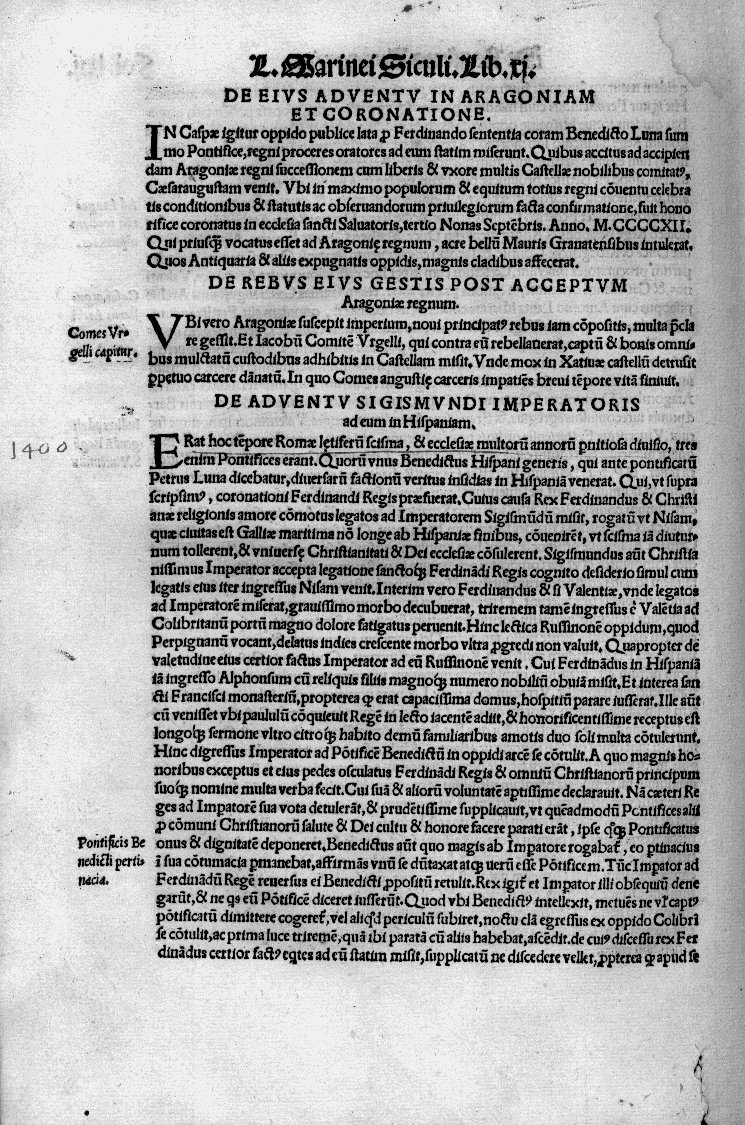 L. Marinei Siculi. Lib. xj.
DE EIVS ADVENTV IN ARAGONIAM
ET CORONATIONE.
IN Caspæ igitur oppido publice lata ꝑ Ferdinando sententia coram Benedicto Luna sum
mo Pontifice, regni proceres oratores ad eum statim miserunt. Quibus accitus ad accipien
dam Aragoniæ regni successionem cum liberis & vxore multis Castellæ nobilibus comitatꝰ,
Cæsaraugustam venit. Vbi in maximo populorum & equitum totius regni cōuentu celebra
tis conditionibus & statutis ac obseruandorum priuilegiorum facta confirmatione, fuit hono
rifice coronatus in ecclesia sancti Saluatoris, tertio Nonas Septēbris. Anno. M.CCCCXII.
Qui priusq̃ vocatus esset ad Aragonię regnum, acre bellū Mauris Granatensibus intulerat.
Quos Antiquaria & aliis expugnatis oppidis, magnis cladibus affecerat.
DE REBVS EIVS GESTIS POST ACCEPTVM
Aragoniæ regnum.
VBi vero Aragoniæ suscepit imperium, noui principatꝰ rebus iam cōpositis, multa p̄cla
re gessit. Et Iacobū Comitē Vrgelli, qui contra eū rebellauerat, captū & bonis omni
bus mulctatū custodibus adhibitis in Castellam misit. Vnde mox in Xatiuæ castellū detrusit
ꝑpetuo carcere dānatū. In quo Comes angustię carceris impatiēs breui tēpore vitā finiuit.
Comes Vr-
gelli capitur.
DE ADVENTV SIGISMVNDI IMPERATORIS
ad eum in Hispaniam.
1400
ERat hoc tēpore Romæ lętiferū scisma, & ecclesiæ multorū annorū ꝑnitiosa diuisio, tres
enim Pontifices erant. Quorū vnus Benedictus Hispani generis, qui ante pontificatū
Petrus Luna dicebatur, diuersarū factionū veritus insidias in Hispaniā venerat. Qui, vt supra
scripsimꝰ, coronationi Ferdinandi Regis præfuerat. Cuius causa Rex Ferdinandus & Christi
anæ religionis amore cōmotus legatos ad Imperatorem Sigismūdū misit, rogatū vt Nisam,
quæ ciuitas est Galliæ maritima nō longe ab Hispaniæ finibus, cōueniret, vt scisma iā diutur-
num tollerent, & vniuersę Christianitati & Dei ecclesiæ cōsulerent. Sigismundus aūt Christia
nissimus Imperator accepta legatione sanctoq́ꝫ Ferdinādi Regis cognito desiderio simul cum
legatis eius iter ingressus Nisam venit. Interim vero Ferdinandus & si Valentiæ, vnde legatos
ad Imperatorē miserat, grauissimo morbo decubuerat, triremem tamē ingressus è Valētia ad
Colibritanū portū magno dolore fatigatus peruenit. Hinc lectica Russinonē oppidum, quod
Perpignanū vocant, delatus indies crescente morbo vltra ꝓgredi non valuit. Quapropter de
valetudine eius certior factus Imperator ad eū Russinonē venit. Cui Ferdinādus in Hispaniā
iā ingresso Alphonsum cū reliquis filiis magnoq́ꝫ numero nobiliū obuiā misit. Et interea san
cti Francisci monasteriū, propterea ꝙ erat capacissima domus, hospitiū parare iusserat. Ille aūt
cū venisset vbi paululū cōquieuit Regē in lecto iacentē adiit, & honorificentissime receptus est
longoq́ꝫ sermone vltro citroq́ꝫ habito demū familiaribus amotis duo soli multa cōtulerunt.
Hinc digressus Imperator ad Pōtificē Benedictū in oppidi arcē se cōtulit. A quo magnis ho-
noribus exceptus et eius pedes osculatus Ferdinādi Regis & omniū Christianorū principum
suoq́ꝫ nomine multa verba fecit. Cui suā & aliorū voluntatē aptissime declarauit. Nā cæteri Re
ges ad Impatorē sua vota detulerāt, & prudētissime supplicauit, vt quēadmodū Pontifices alii
ꝓ cōmuni Christianorū salute & Dei cultu & honore facere parati erāt, ipse q́ꝫ Pontificatus
onus & dignitatē deponeret. Benedictus aūt quo magis ab Impatore rogabat᷑, eo ꝑtinacius
ī sua cōtumacia ꝑmanebat, affirmās vnū se dūtaxat atq́ꝫ uerū esse Pōtificem. Tūc Impator ad
Ferdinādū Regē reuersus ei Benedicti ꝓpositū retulit. Rex igit᷑ et Impator illi obsequiū dene
garūt, & ne qs eū Pōtificē diceret iusserūt. Quod vbi Benedictꝰ intellexit, metuēs ne vl captꝰ
pōtificatū dimittere cogeret᷑, vel aliqd periculū subiret, noctu clā egressus ex oppido Colibri
se cōtulit, ac prima luce triremē, quā ibi paratā cū aliis habebat, ascēdit. de cuiꝰ discessu rex Fer
dinādus certior factꝰ eq̄tes ad eū statim misit, supplicatū ne discedere vellet, ꝓpterea ꝙ apud se
Pontificis Be
nedicti perti-
nacia.